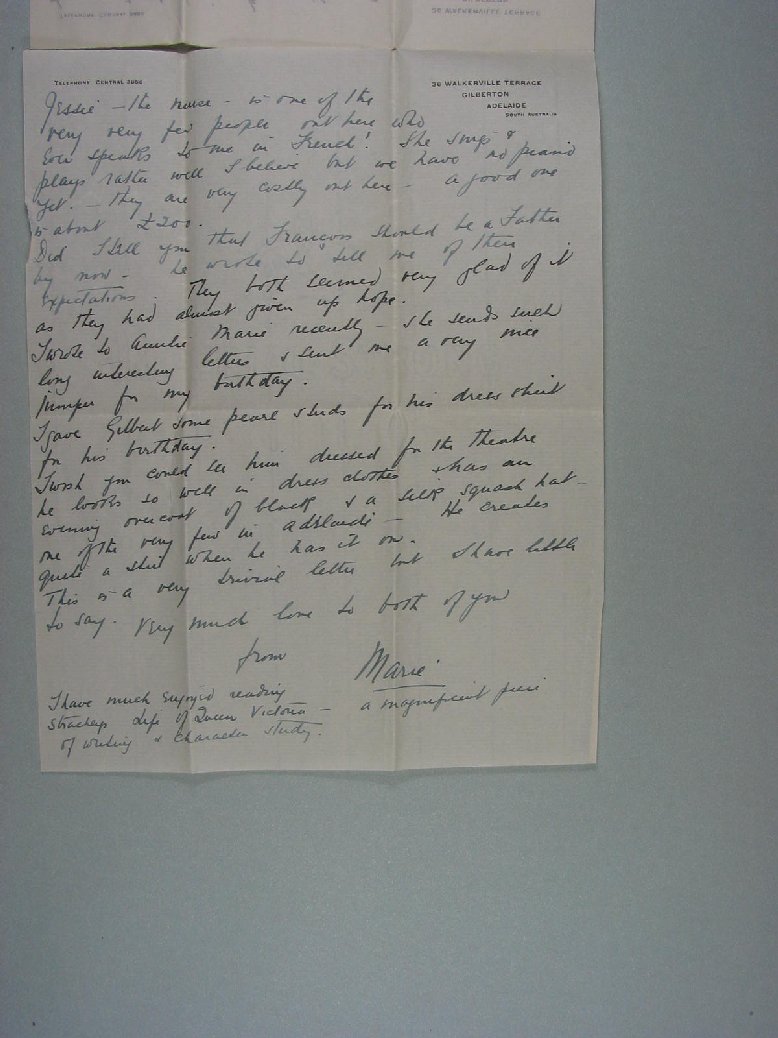 36 WALKERVILLE TERRACE
TELEPHONE CENTRAL
36 WALKERVILLE TERRACE
GILBERTON
ADELAIDE
SOUTH AUSTRALIA
Jessie – the nurse – is one of the
very very few people out here who
ever speaks to me in French! She sings &
plays rather well I believe but we have no piano
yet. – They are very costly out here – a good one
is about £200.
Did I tell you that Francois should be a Father
by now – he wrote to tell me of their
expectations. They both seemed very glad of it
as they had almost given up hope.
I wrote to Auntie Marie recently – she sends such
long interesting letters & sent me a very nice
jumper for my birthday.
I gave Gilbert some pearl studs for his dress shirt
for his birthday.
I wish you could see him dressed for the theatre
he looks so well in dress clothes & has an
evening overcoat of black & a silk squash hat –
one of the very few in Adelaide – He creates
quite a stir when he has it on.
This is a very trivial letter but I have little
to say. Very much love to both of you
from
Marie
I have much enjoyed reading
Stracheys Life of Queen Victoria – a magnificent piece
of writing & character study.